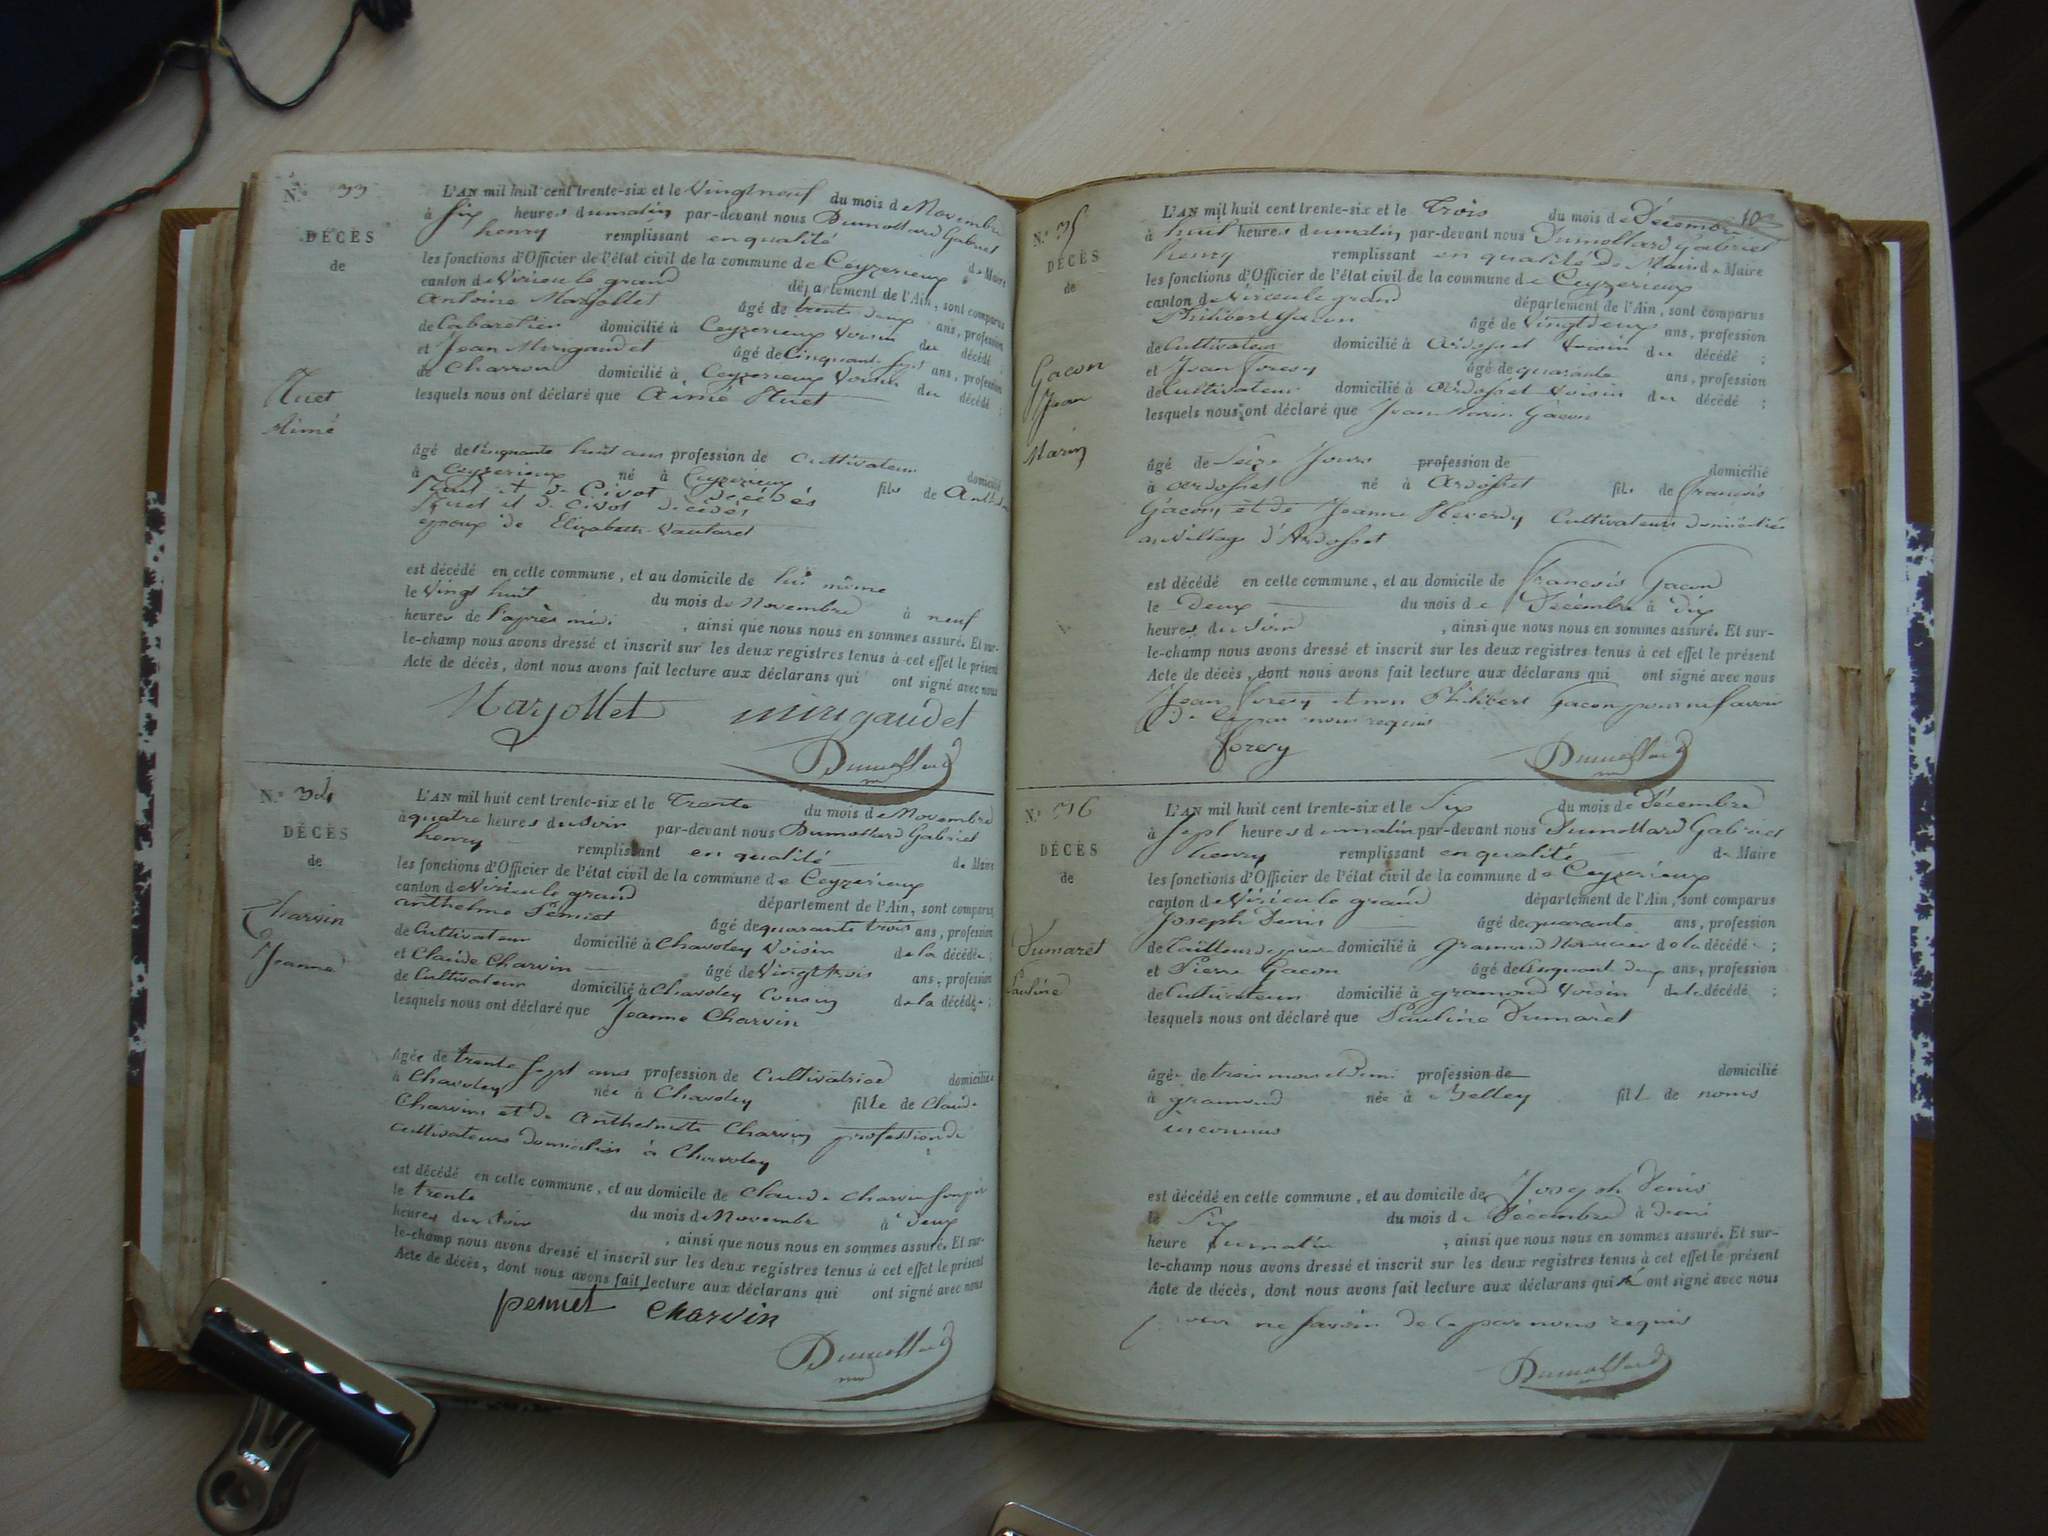 N.° 33
DÉCÈS
de
Huet
Aimé
L'AN mil huit cent trente-six et le Vingt neuf du mois de Novembre
à Six heures du matin par-devant nous Dumollard Gabriel
henry remplissant en qualité de Maire
les fonctions d'Officier de l'état civil de la commune de Ceyzerieux
canton de Virieu le grand département de l'Ain, sont comparus
Antoine Marjollet âgé de trente deux ans, profession
de Cabaretier domicilié à Ceyzerieux Voisin du décédé ;
et Jean Mirigaudet âgé de Cinquante Sept ans, profession
de Charron domicilié à Ceyzerieux Voisin du décédé ;
lesquels nous ont déclaré que Aimé Huet
âgé de Cinquante huit ans profession de Cultivateur domicilié
à Ceyzerieux né à Ceyzerieux fils de
Huet et de Civot décédés
époux de Elizabeth Vautaret
est décédé en cette commune, et au domicile de lui même
le Vingt huit du mois de Novembre à neuf
heures de l'après midi, ainsi que nous nous en sommes assuré. Et sur-
le-champ nous avons dressé et inscrit sur les deux registres tenus à cet effet le présent
Acte de décès, dont nous avons fait lecture aux déclarans qui ont signé avec nous
Marjollet Mirigaudet
Dumollard
N.° 34
DÉCÈS
de
Charvin
Jeanne
L'AN mil huit cent trente-six et le Trente du mois de Novembre
à quatre heures du Soir par-devant nous Dumollard Gabriel
henry remplissant en qualité de Maire
les fonctions d'Officier de l'état civil de la commune de Ceyzerieux
canton de Virieu le grand département de l'Ain, sont comparus
anthelme Pernet âgé de quarante trois ans, profession
de Cultivateur domicilié à Chavoley Voisin de la décédée ;
et Claude Charvin âgé de Vingt trois ans, profession
de Cultivateur domicilié à Chavoley Cousin de la décédée ;
lesquels nous ont déclaré que Jeanne Charvin
âgée de trente Sept ans profession de Cultivatrice domiciliée
à Chavoley née à Chavoley fille de Claude
Charvin et de Anthelmette Charvin profession de
cultivateurs domiciliés à Chavoley
est décédé en cette commune, et au domicile de Claude Charvin Son père
le trente du mois de Novembre à Deux
heures du Soir, ainsi que nous nous en sommes assuré. Et sur-
le-champ nous avons dressé et inscrit sur les deux registres tenus à cet effet le présent
Acte de décès, dont nous avons fait lecture aux déclarans qui ont signé avec nous
pernet Charvin
Dumollard
N.° 35
DÉCÈS
de
Gacon
Jean
Marin
L'AN mil huit cent trente-six et le Trois du mois de Décembre
à huit heures du matin par-devant nous Dumollard Gabriel
henry remplissant en qualité de Maire de Maire
les fonctions d'Officier de l'état civil de la commune de Ceyzerieux
canton de Virieu le grand département de l'Ain, sont comparus
Philibert Gacon âgé de Vingt deux ans, profession
de Cultivateur domicilié à Ardosset Voisin du décédé ;
et Jean Foresy âgé de quarante ans, profession
de Cultivateur domicilié à Ardosset Voisin du décédé ;
lesquels nous ont déclaré que Jean Marin Gacon
âgé de Seize Jours profession de domicilié
à Ardosset né à Ardosset fils de François
Gacon et de Jeanne Cultivateurs domiciliés
au Village d'Ardosset
est décédé en cette commune, et au domicile de François Gacon
le Deux du mois de Décembre à dix
heures du Soir, ainsi que nous nous en sommes assuré. Et sur-
le-champ nous avons dressé et inscrit sur les deux registres tenus à cet effet le présent
Acte de décès, dont nous avons fait lecture aux déclarans qui ont signé avec nous
Jean Foresy et non Philibert Gacon pour ne Savoir
de ce par nous requis
Foresy
Dumollard
N.° 36
DÉCÈS
de
Dumarêt
Pauline
L'AN mil huit cent trente-six et le Six du mois de Décembre
à Sept heures du matin par-devant nous Dumollard Gabriel
henry remplissant en qualité de Maire
les fonctions d'Officier de l'état civil de la commune de Ceyzerieux
canton de Virieu le grand département de l'Ain, sont comparus
Joseph Denis âgé de quarante ans, profession
de domicilié à gramond de la décédée ;
et Pierre Gacon âgé de Cinquant deux ans, profession
de Cultivateur domicilié à gramond Voisin de la décédé ;
lesquels nous ont déclaré que Pauline Dumarêt
âgée de trois mois et Demi profession de domicilié
à gramond née à Belley fille de noms
inconnus
est décédé en cette commune, et au domicile de Joseph Denis
le Six du mois de Décembre à Demi
heure du matin, ainsi que nous nous en sommes assuré. Et sur-
le-champ nous avons dressé et inscrit sur les deux registres tenus à cet effet le présent
Acte de décès, dont nous avons fait lecture aux déclarans qui ont signé avec nous
pour ne Savoir de ce par nous requis
Dumollard